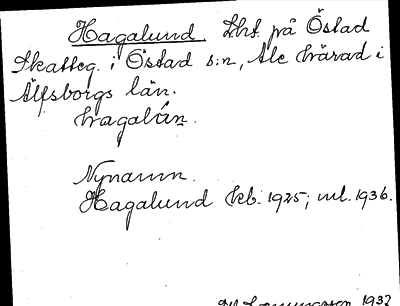 Hagalund. Lht. på Östad
Skatteg. i Östad s:n, Ale härad i
Älfsborgs län.
hagalún
Nynamn.
Hagalund kb. 1925; ml. 1936.
1937